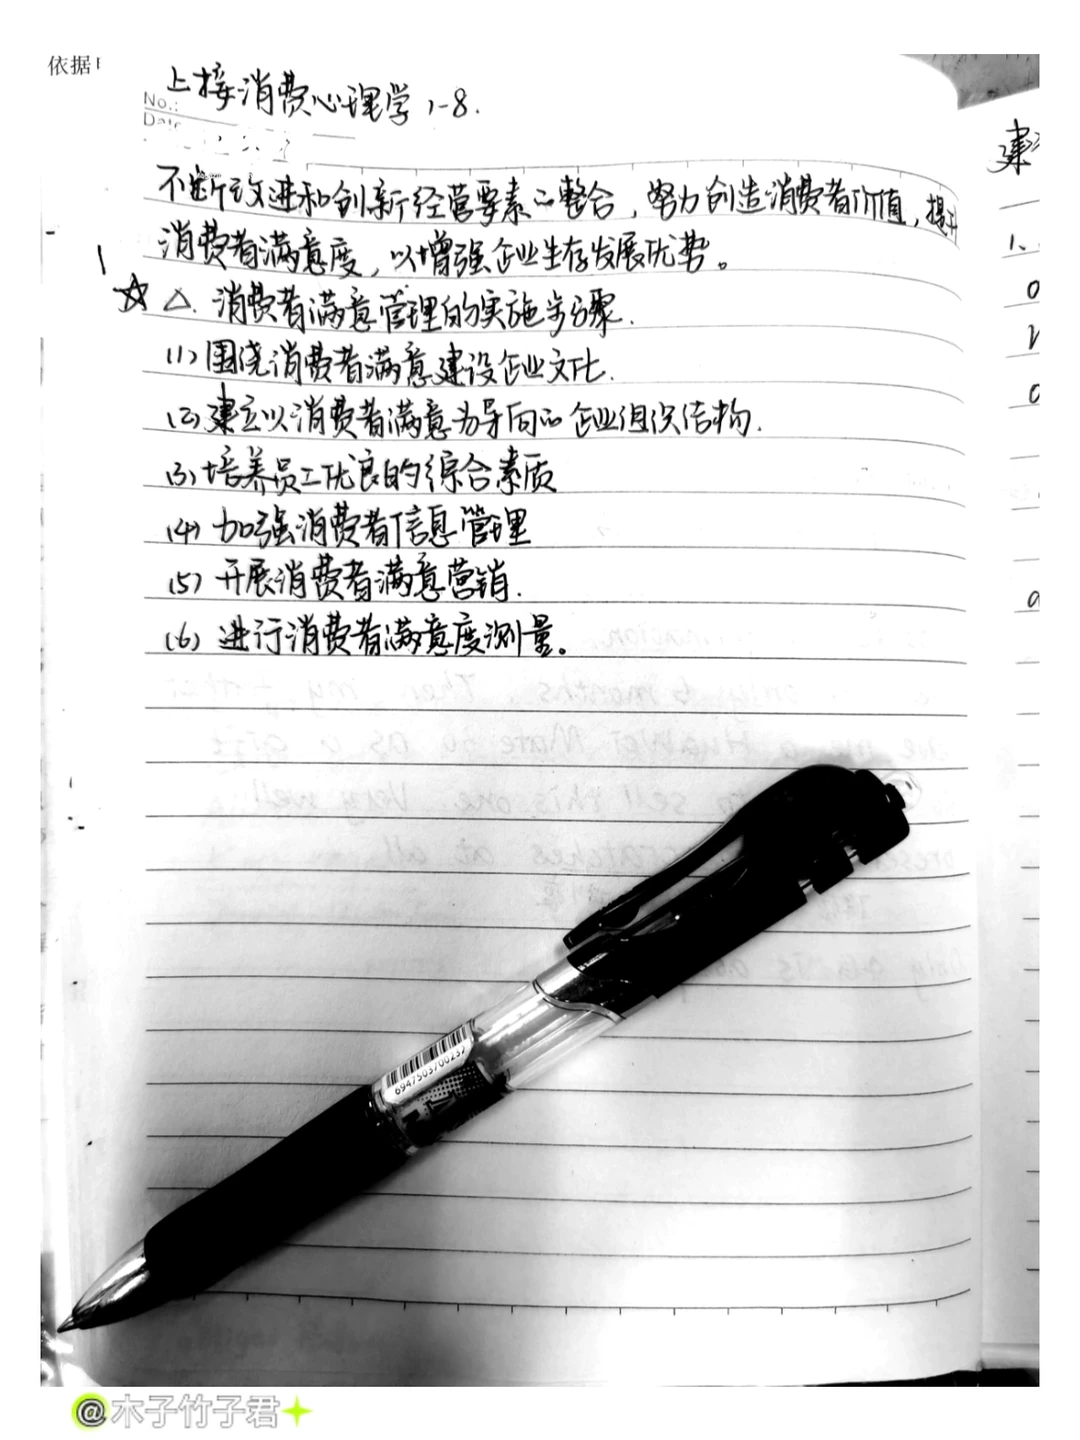 依据
上接消费心理学1-8.
No.:
Date
不断改进和创新经营要素的整合，努力创造消费者价值，提升
消费者满意度，以增强企业生存发展优势。
☆ △. 消费者满意管理的实施步骤.
(1) 围绕消费者满意建设企业文化.
(2) 建立以消费者满意为导向的企业组织结构.
(3) 培养员工优良的综合素质
(4) 加强消费者信息管理
(5) 开展消费者满意营销.
(6) 进行消费者满意度测量。
建
1.
6947503700232
@木子竹子君